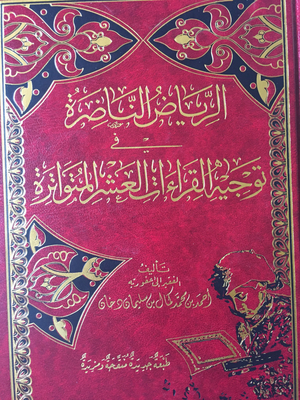 الرياض الناضرة
في
توجيه القراءات العشر المتواترة
تأليف
الفقير إلى عفو ربه
أحمد بن محمد كمال بن سليمان دخان
طبعة جديدة منقحة ومزيدة